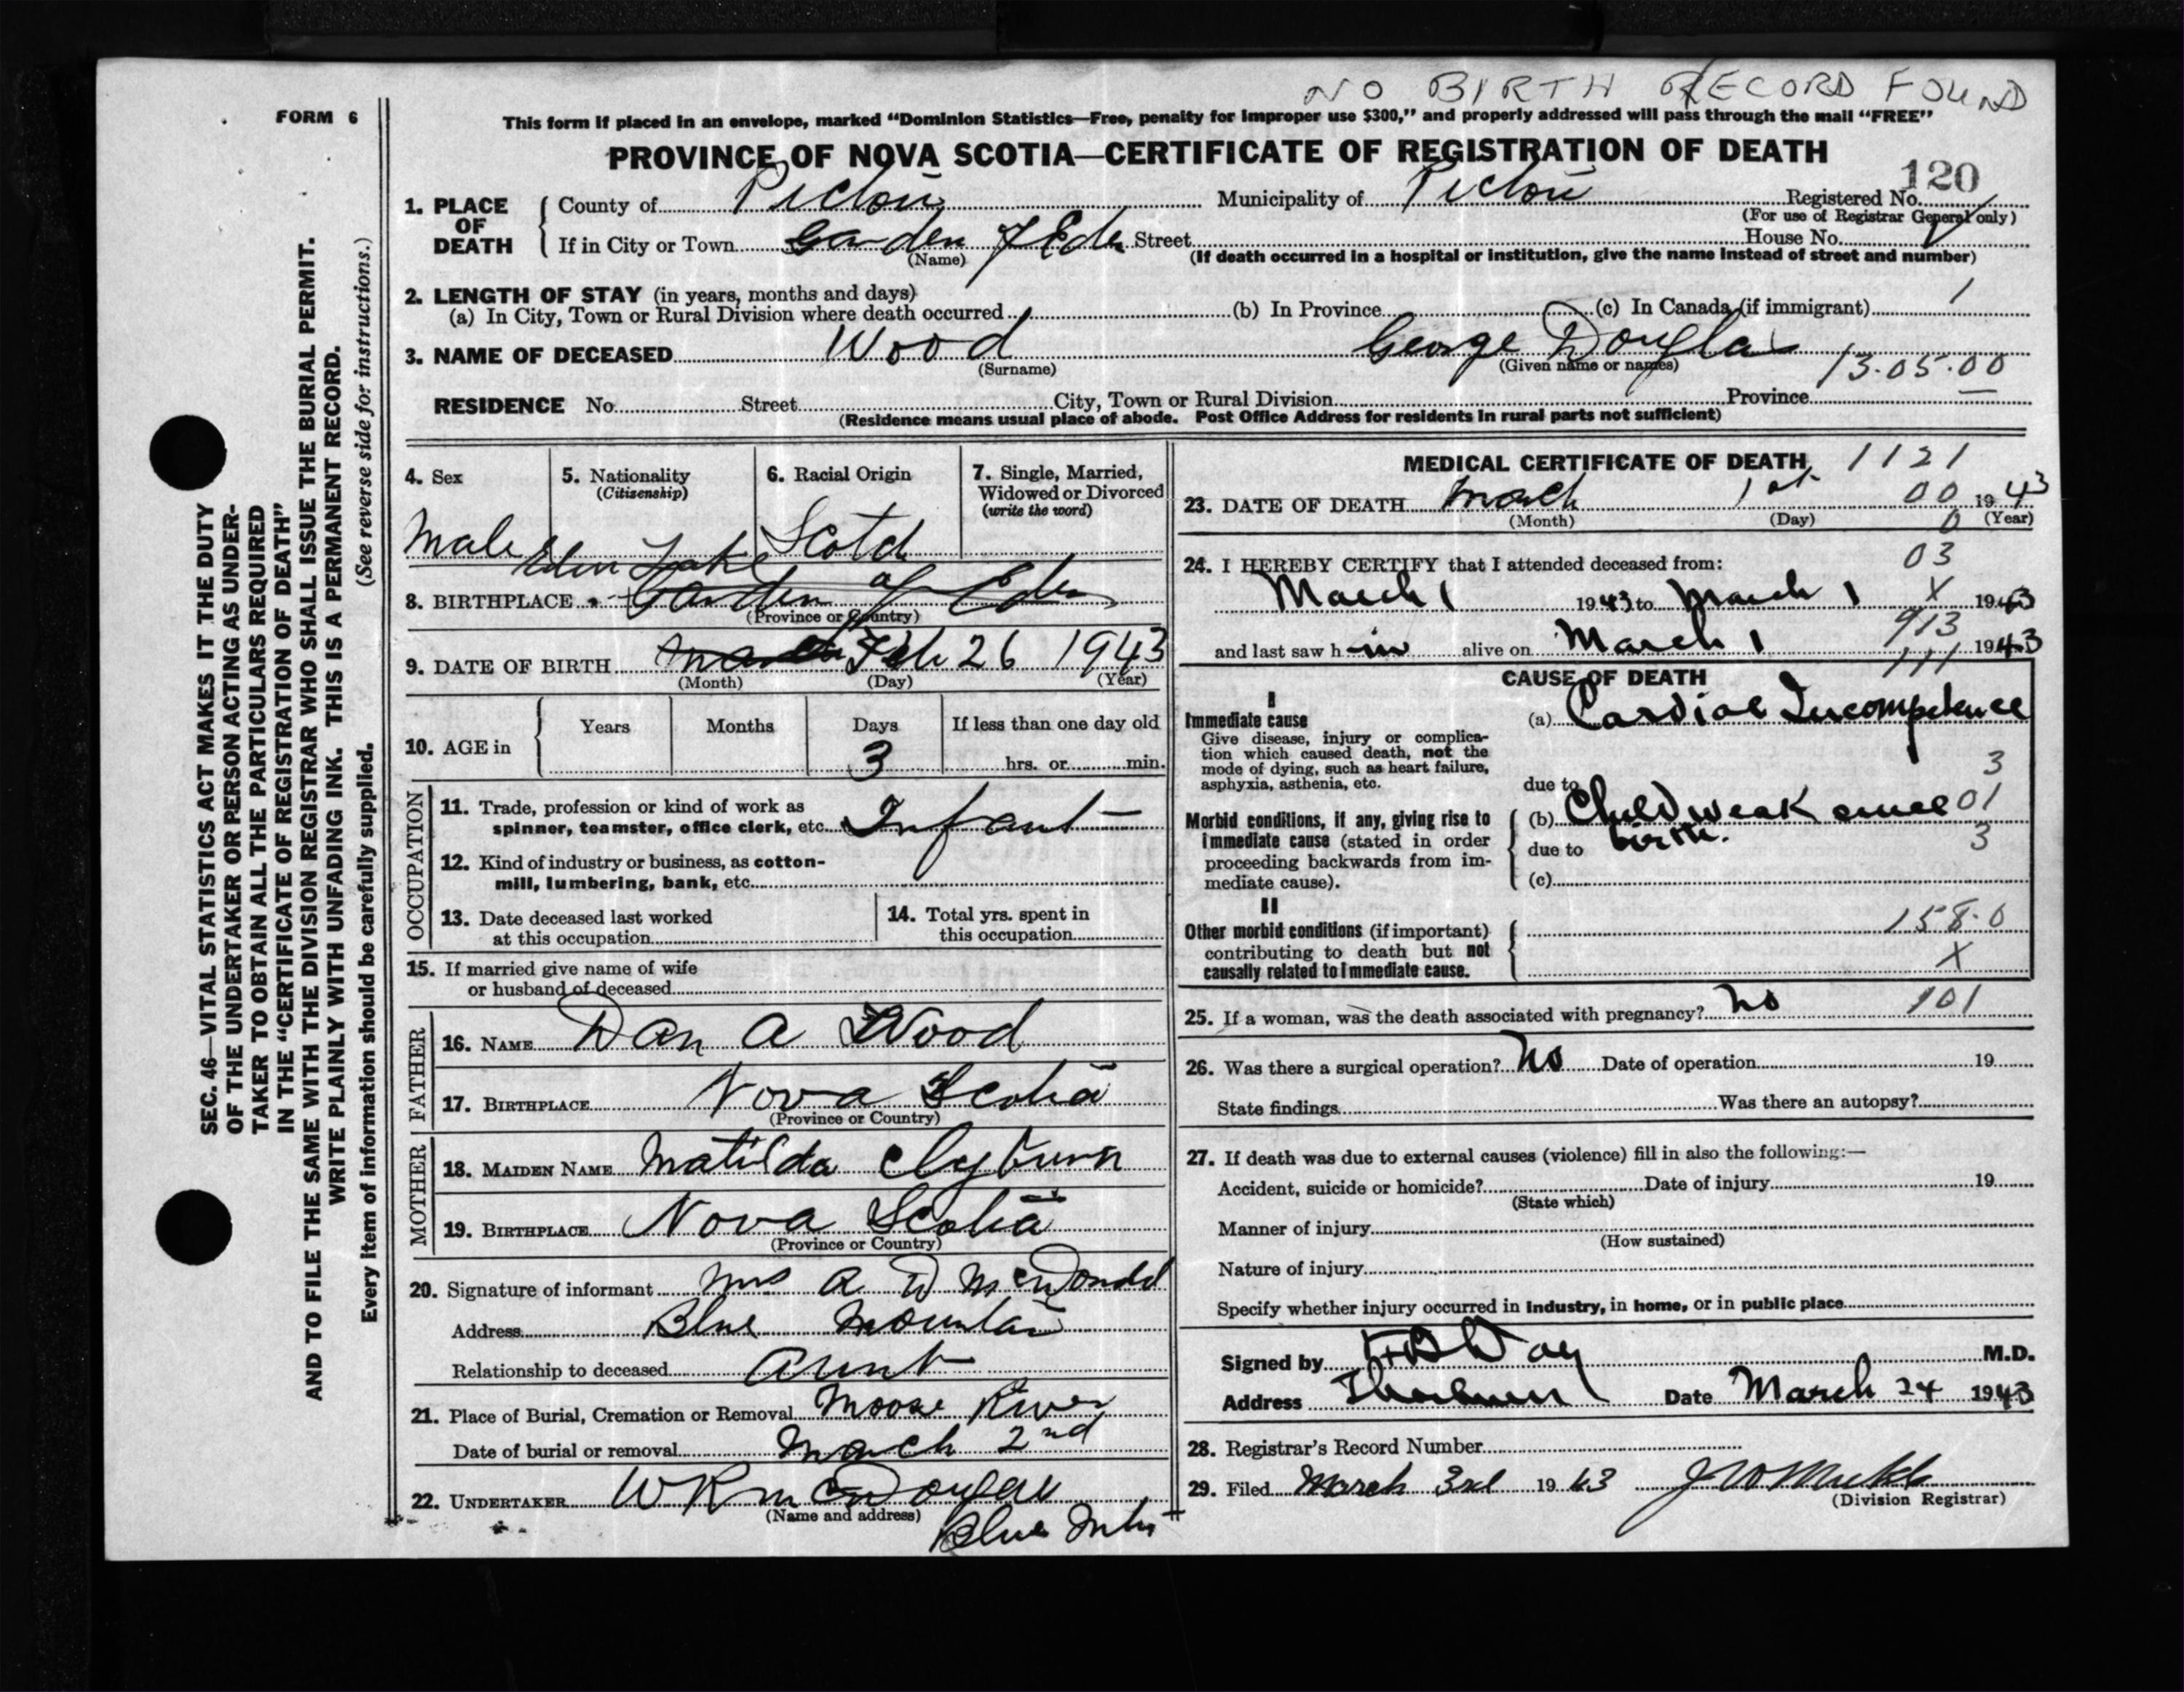 NO BIRTH RECORD FOUND
FORM 6
This form if placed in an envelope, marked “Dominion Statistics—Free, penalty for improper use $300,” and properly addressed will pass through the mail “FREE”
PROVINCE OF NOVA SCOTIA—CERTIFICATE OF REGISTRATION OF DEATH
120
1. PLACE OF DEATH
County of Pictou Municipality of Pictou Registered No.
(For use of Registrar General only)
If in City or Town Garden of Eden Street House No.
(Name) (If death occurred in a hospital or institution, give the name instead of street and number)
2. LENGTH OF STAY (in years, months and days)
(a) In City, Town or Rural Division where death occurred (b) In Province (c) In Canada (if immigrant) 1
3. NAME OF DECEASED Wood George Douglas
(Surname) (Given name or names) 13.05.00
RESIDENCE No. Street City, Town or Rural Division Province
(Residence means usual place of abode. Post Office Address for residents in rural parts not sufficient)
SEC. 46—VITAL STATISTICS ACT MAKES IT THE DUTY
OF THE UNDERTAKER OR PERSON ACTING AS UNDER-
TAKER TO OBTAIN ALL THE PARTICULARS REQUIRED
IN THE “CERTIFICATE OF REGISTRATION OF DEATH”
AND TO FILE THE SAME WITH THE DIVISION REGISTRAR WHO SHALL ISSUE THE BURIAL PERMIT.
WRITE PLAINLY WITH UNFADING INK. THIS IS A PERMANENT RECORD.
Every item of information should be carefully supplied. (See reverse side for instructions.)
4. Sex
Male
5. Nationality
(Citizenship)
6. Racial Origin
Scotch
7. Single, Married,
Widowed or Divorced
(write the word)
Eden Lake
8. BIRTHPLACE Garden of Eden
(Province or Country)
9. DATE OF BIRTH March Feb 26 1943
(Month) (Day) (Year)
10. AGE in
Years Months Days If less than one day old
3 hrs. or min.
OCCUPATION
11. Trade, profession or kind of work as
spinner, teamster, office clerk, etc. Infant
12. Kind of industry or business, as cotton-
mill, lumbering, bank, etc.
13. Date deceased last worked
at this occupation
14. Total yrs. spent in
this occupation
15. If married give name of wife
or husband of deceased
FATHER
16. NAME Dan A Wood
17. BIRTHPLACE Nova Scotia
(Province or Country)
MOTHER
18. MAIDEN NAME Matilda Clyburn
19. BIRTHPLACE Nova Scotia
(Province or Country)
20. Signature of informant Mrs A D McDonald
Address Blue Mountain
Relationship to deceased Aunt
21. Place of Burial, Cremation or Removal Moose River
Date of burial or removal March 2nd
22. UNDERTAKER W R McDougall
(Name and address) Blue Mtn
MEDICAL CERTIFICATE OF DEATH 1121
23. DATE OF DEATH March 1st 00 1943
(Month) (Day) 0 (Year)
24. I HEREBY CERTIFY that I attended deceased from: 03
March 1 1943 to March 1 X 1943
and last saw h im alive on March 1 913 1943
111
CAUSE OF DEATH
I
Immediate cause
Give disease, injury or complica-
tion which caused death, not the
mode of dying, such as heart failure,
asphyxia, asthenia, etc.
(a) Cardiac Incompetence
3
due to
Morbid conditions, if any, giving rise to
immediate cause (stated in order
proceeding backwards from im-
mediate cause).
(b) Child weak since 01
due to birth. 3
(c)
II
Other morbid conditions (if important)
contributing to death but not
causally related to immediate cause.
158.0
X
25. If a woman, was the death associated with pregnancy? No 101
26. Was there a surgical operation? No Date of operation 19
State findings Was there an autopsy?
27. If death was due to external causes (violence) fill in also the following:—
Accident, suicide or homicide? Date of injury 19
(State which)
Manner of injury
(How sustained)
Nature of injury
Specify whether injury occurred in industry, in home, or in public place
Signed by Day M.D.
Address Thorburn Date March 24 1943
28. Registrar's Record Number
29. Filed March 3rd 1943
(Division Registrar)